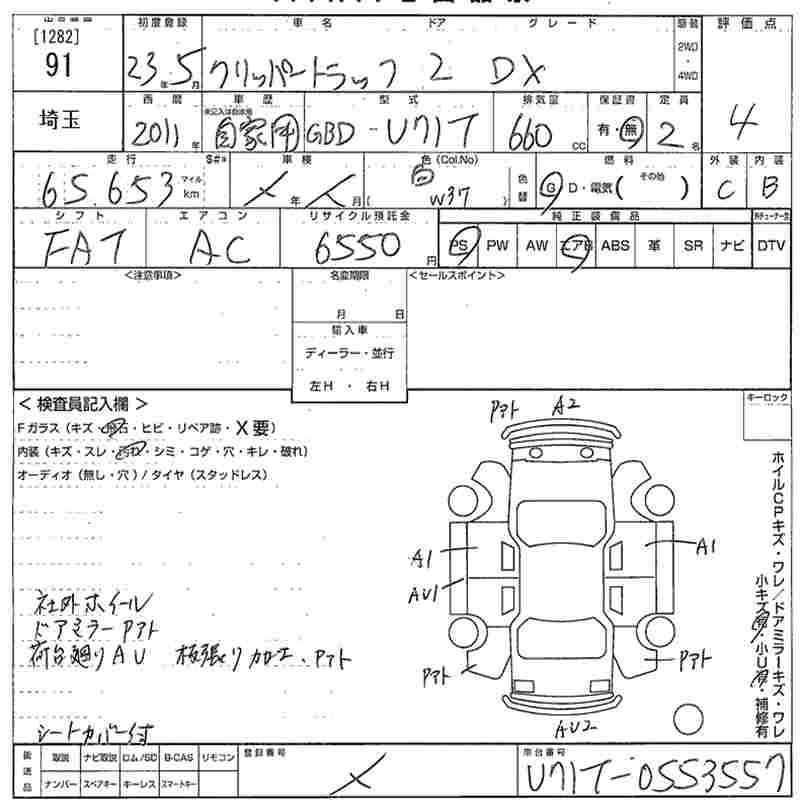 [1282]
91
埼玉
初度登録 車名 ドア グレード 駆動 評価点
23年5月 クリッパートラック 2 DX 2WD・4WD 4
西暦 車歴 型式 排気量 保証書 定員
※記入は自家用
2011年 自家用 GBD-U71T 660cc 有・無 2名
走行 S#* 車検 色(Col.No) 燃料 外装 内装
65,653 マイル km ×年×月 白 (W37) 色替 G・D・電気( その他 ) C B
シフト エアコン リサイクル預託金 純正装備品
FAT AC 6550円 PS PW AW エアB ABS 革 SR ナビ DTV
<注意事項> 名変期限 <セールスポイント>
月 日
輸入車
ディーラー・並行
左H・右H
<検査員記入欄> キーロック
Fガラス(キズ・飛石・ヒビ・リペア跡・X要)
内装(キズ・スレ・汚れ・シミ・コゲ・穴・キレ・破れ)
オーディオ(無し・穴)/タイヤ(スタッドレス)
Pアト A2
A1 A1
AU1
Pアト Pアト
AU2
ホイルCPキズ・ワレ/ドアミラーキズ・ワレ
小キズ有・小U有・補修有
社外ホイール
ドアミラーPアト
荷台廻りAU 板張り加工、Pアト
シートカバー付
後送品 取説 ナビ取説 ロム/SD B-CAS リモコン 登録番号 車台番号
ナンバー スペアキー キーレス スマートキー × U71T-0553557